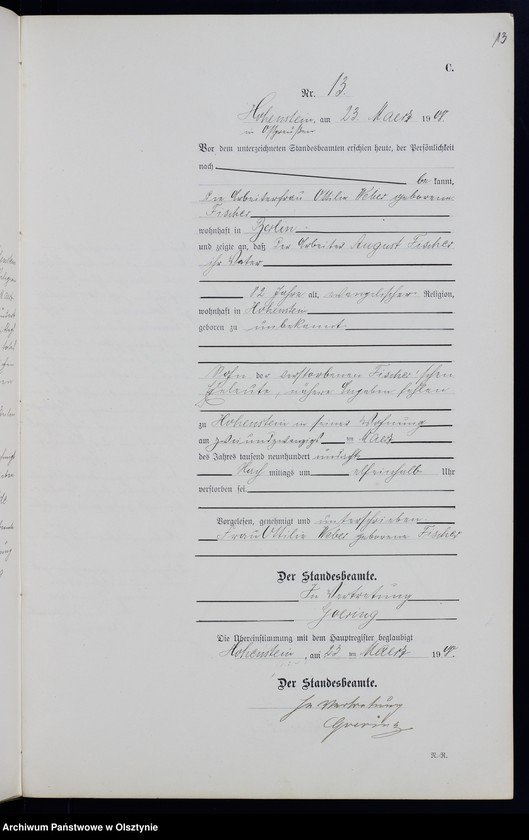 13
C.
Nr. 13.
Hohenstein, am 23. Maerz 1908.
in Ostpreußen
Vor dem unterzeichneten Standesbeamten erschien heute, der Persönlichkeit
nach
be kannt,
die Arbeiterfrau Ottilie Weber geborene
Fischer
wohnhaft in Berlin
und zeigte an, daß der Arbeiter August Fischer
ihr Vater
82 Jahre alt, evangelischer Religion,
wohnhaft in Hohenstein
geboren zu unbekannt
Sohn der verstorbenen Fischer'schen
Eheleute, nähere Angaben fehlen
zu Hohenstein in seiner Wohnung
am zweiundzwanzigsten Maerz
des Jahres tausend neunhundert undacht
Nach mittags um elfeinhalb Uhr
verstorben sei
Vorgelesen, genehmigt und unterschrieben.
Frau Ottilie Weber geborene Fischer
Der Standesbeamte.
In Vertretung
Goering
Die Übereinstimmung mit dem Hauptregister beglaubigt
Hohenstein, am 23 ten Maerz 1908.
Der Standesbeamte.
In Vertretung
Goering
N.-R.
Archiwum Państwowe w Olsztynie